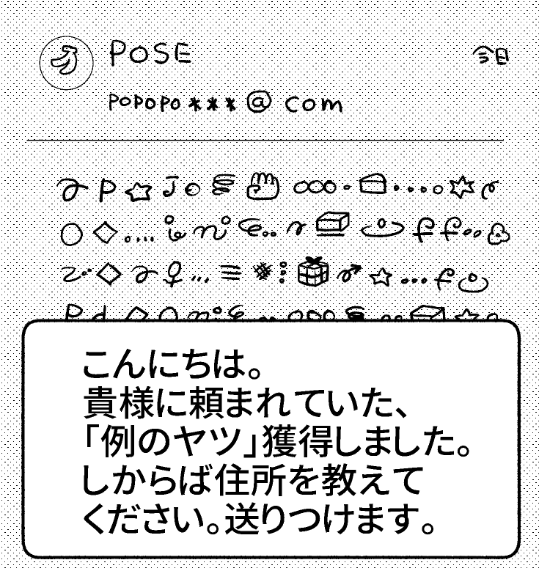 POSE
今日
POPOPO***@com
こんにちは。
貴様に頼まれていた、
「例のヤツ」獲得しました。
しからば住所を教えて
ください。送りつけます。